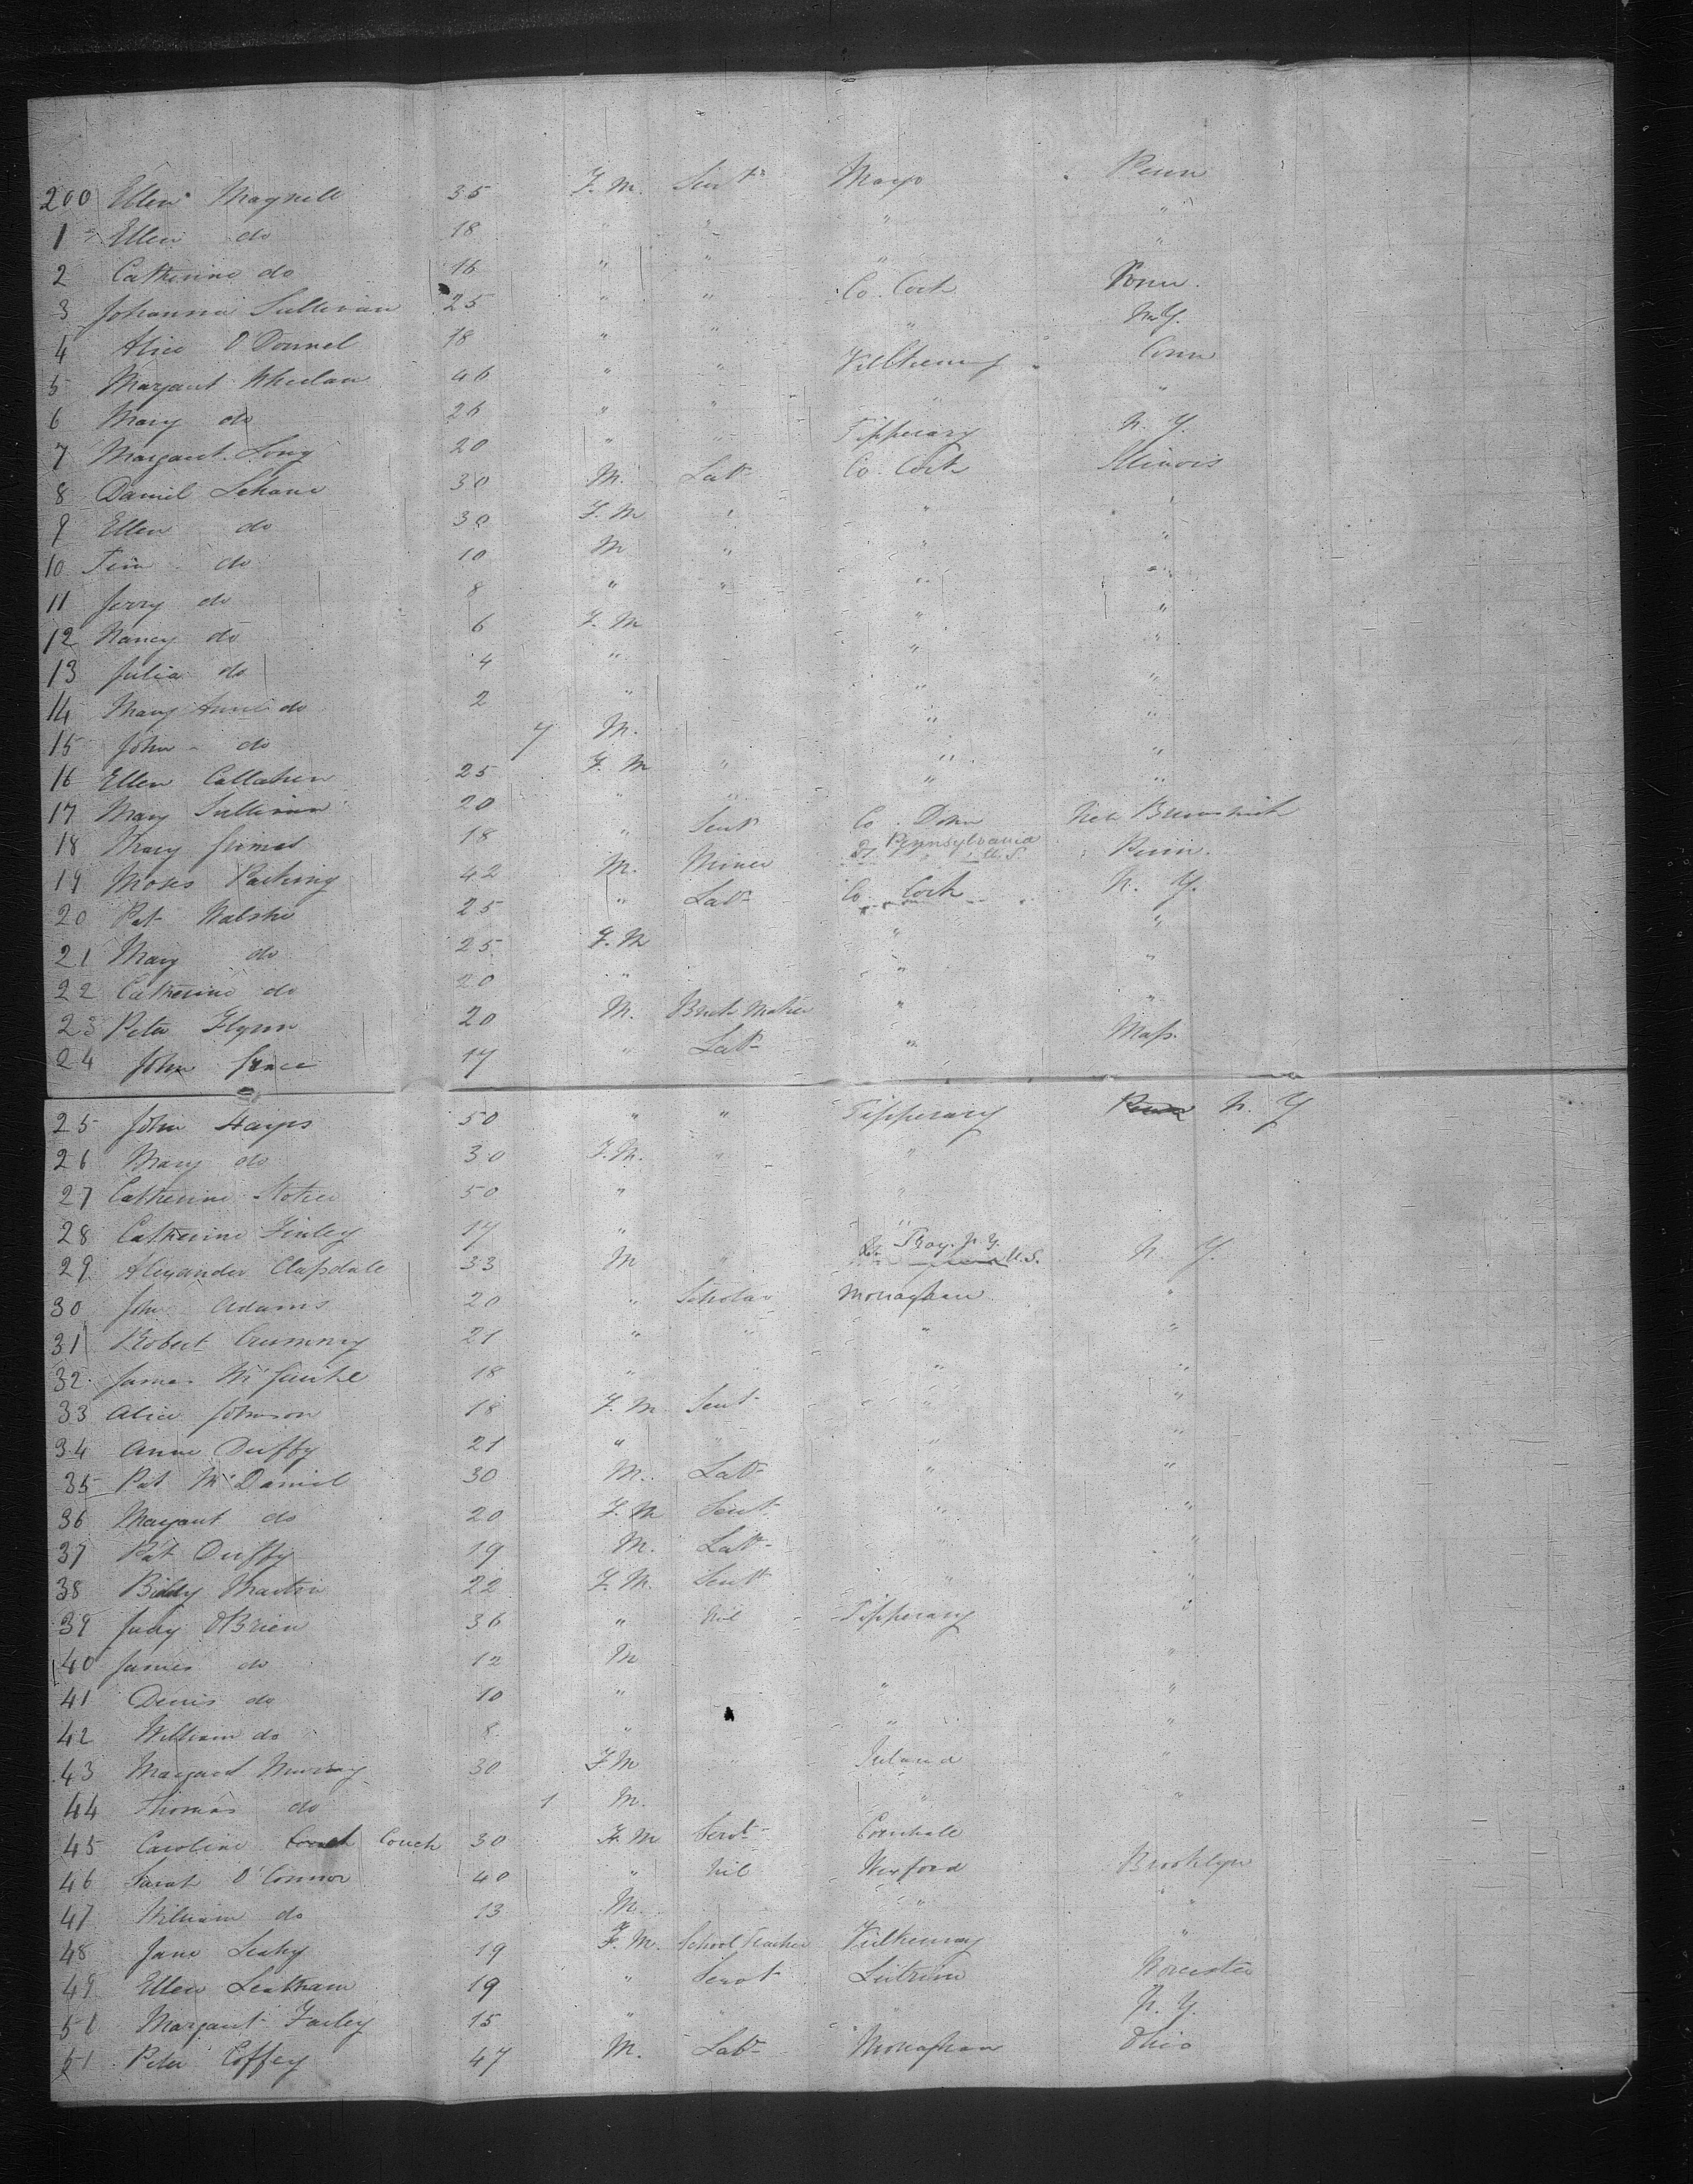 200 Ellen Magnell 35 F. M. Servt Mayo Penn
1 Ellen do 18 " " " "
2 Catherine do 16 " " " "
3 Johanna Sullivan 25 " " Co. Cork Penn.
4 Alice O'Donnel 18 " " " N.Y.
5 Margaret Wheelan 46 " " Killkenny Conn
6 Mary do 26 " " " "
7 Margaret Long 20 " " Tipperary N. Y.
8 Daniel Lehane 30 M. Labr Co. Cork Illinois
9 Ellen do 30 F. M " " "
10 Tim do 10 M " " "
11 Jerry do 8 " " " "
12 Nancy do 6 F. M " "
13 Julia do 4 " " "
14 Mary Anne do 2 " " "
15 John do 7 M. " "
16 Ellen Callahan 25 F. M " " "
17 Mary Sullivan 20 " " " "
18 Mary Grimes 18 " Servt Co. Down New Brunswick
19 Moses 42 M. Miner Pennsylvania U.S. Penn.
20 Pat Walshe 25 " Labr Co. Cork N. Y.
21 Mary do 25 F. M " "
22 Catherine do 20 " " "
23 Peter Flynn 20 M. Brick Maker " "
24 John Grace 17 " Labr " Mass.
25 John Hayes 50 " " Tipperary Penn N. Y
26 Mary do 30 F. M. " "
27 Catherine 50 " "
28 Catherine Finley 17 " "
29 Alexander Clapdale 33 M " Troy. N. Y. U.S. N. Y.
30 John Adams 20 " Scholar Monaghan "
31 Robert Crummy 21 " " " "
32 James McGuirke 18 " " "
33 Alice Johnson 18 F. M Servt " "
34 Anne Duffy 21 " " " "
35 Pat McDaniel 30 M. Labr " "
36 Margaret do 20 F. M Servt " "
37 Pat Duffy 19 M. Labr " "
38 Biddy Martin 22 F. M. Servt " "
39 Judy O'Brien 36 " Nil Tipperary "
40 James do 12 M "
41 Denis do 10 " " "
42 William do 8 " " "
43 Margaret Murray 30 F. M " Ireland "
44 Thomas do 1 M. " "
45 Caroline Couch Couch 30 F. M Servt Cornhale
46 Sarah O'Connor 40 " Nil Wexford Brooklyn
47 William do 13 M. " "
48 Jane Leahy 19 F. M. School Teacher Kilkenny "
49 Ellen Leatham 19 " Servt Leitrim Worcester
50 Margaret Farley 15 " " " N. Y.
51 Peter Coffey 47 M. Labr Monaghan Ohio